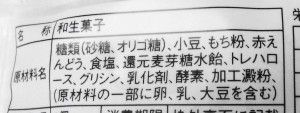 名 称 和生菓子
原材料名 糖類(砂糖、オリゴ糖)、小豆、もち粉、赤え
んどう、食塩、還元麦芽糖水飴、トレハロ
ース、グリシン、乳化剤、酵素、加工澱粉、
(原材料の一部に卵、乳、大豆を含む)
消費期限